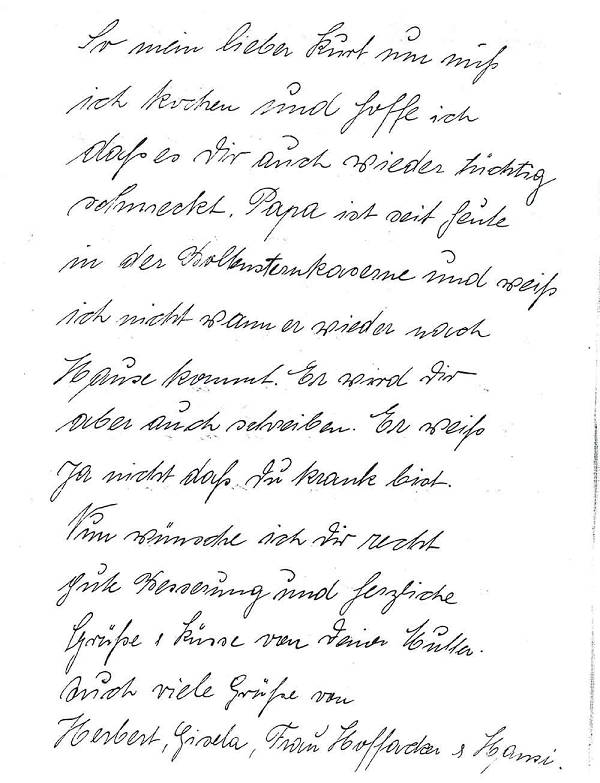 So mein lieber Kurt nun muß
ich kochen und hoffe ich
daß es Dir auch wieder tüchtig
schmeckt. Papa ist seit heute
in der und weiß
ich nicht wann er wieder nach
Hause kommt. Er wird Dir
aber auch schreiben. Er weiß
Ja nicht daß Du krank bist.
Nun wünsche ich Dir recht
gute Besserung und herzliche
Grüße & Küsse von Deiner Mutter.
Auch viele Grüße von
Herbert, Gisela, Frau Hoffacker & Hansi.